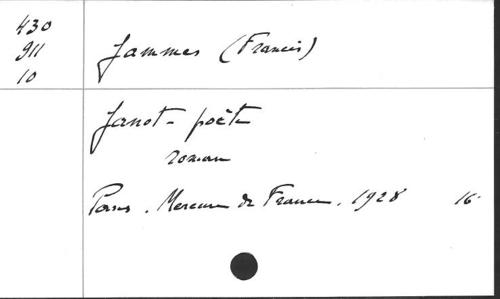 430
911
10
Jammes (Francis)
Janot-poète
roman
Paris. Mercure de France. 1928 16°